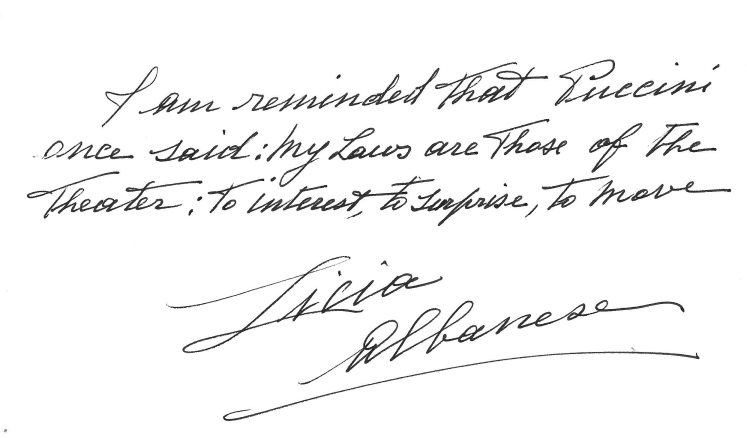 I am reminded that Puccini
once said: My Laws are Those of The
Theater: To interest, to surprise, to move
Licia
Albanese